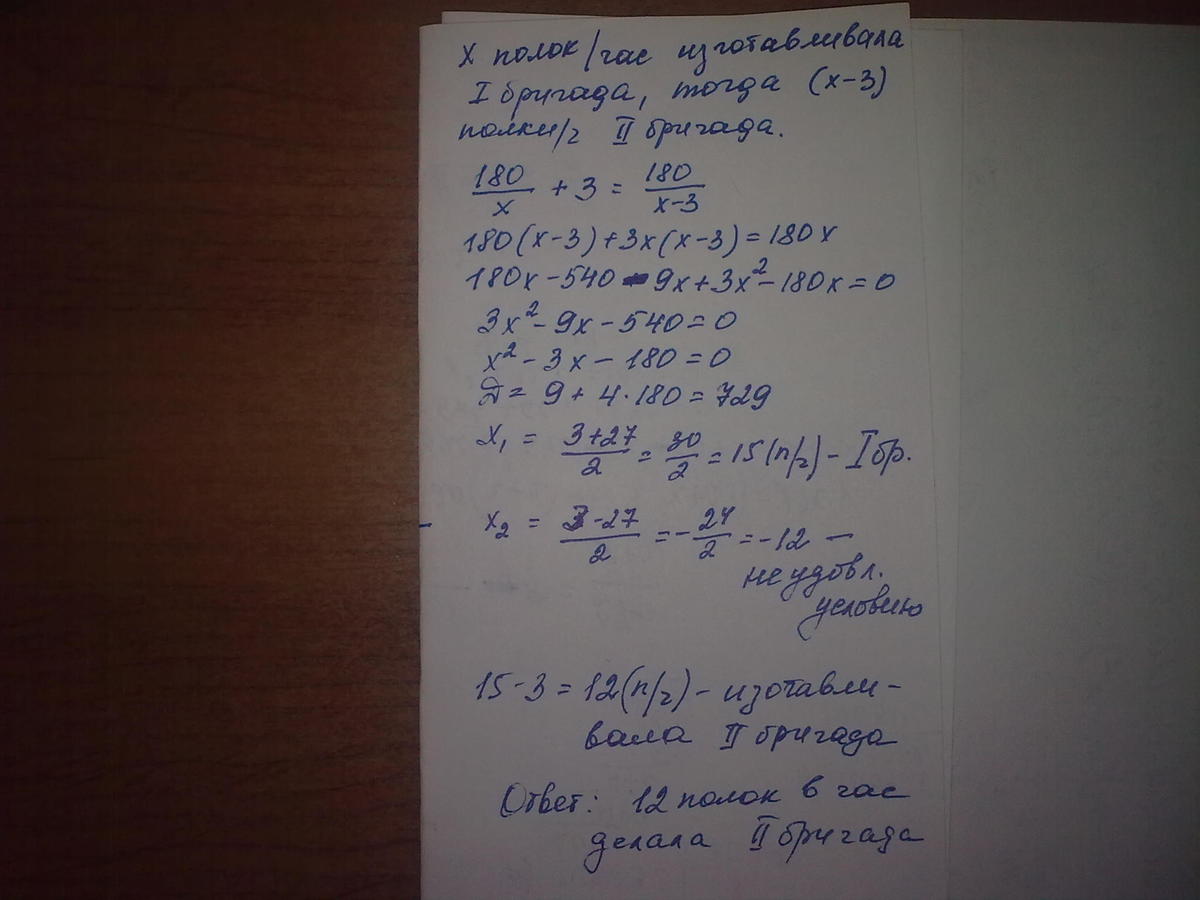 X полок/час изготавливала
I бригада, тогда (x-3)
полки/г II бригада.
180/x + 3 = 180/x-3
180(x-3)+3x(x-3)=180x
180x-540-9x+3x²-180x=0
3x²-9x-540=0
x²-3x-180=0
D= 9+4·180=729
x₁ = 3+27/2 = 30/2 = 15(п/г) - I бр.
x₂ = 3-27/2 = -24/2 = -12 -
не удовл.
условию
15-3=12(п/г) - изотавли-
вала II бригада
Ответ: 12 полок в час
делала II бригада